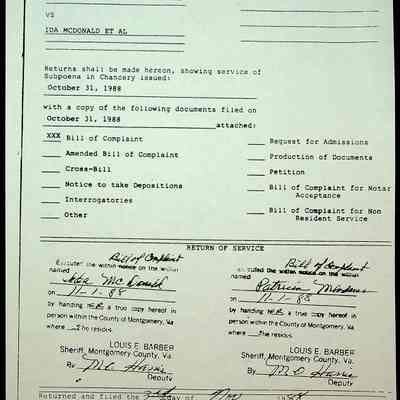 VS
IDA MCDONALD ET AL
Returns shall be made hereon, showing service of
Subpoena in Chancery issued:
October 31, 1988
with a copy of the following documents filed on
October 31, 1988 attached:
XXX Bill of Complaint
Amended Bill of Complaint
Cross-Bill
Notice to take Depositions
Interrogatories
Other
Request for Admissions
Production of Documents
Petition
Bill of Complaint for Notar
Acceptance
Bill of Complaint for Non
Resident Service
RETURN OF SERVICE
Bill of Complaint
Executed the within notice on the within
named Ida McDonald
on 11-1-88
by handing her a true copy hereof in
person within the County of Montgomery, Va.
where she resides.
LOUIS E. BARBER
Sheriff, Montgomery County, Va.
By M.C.
Deputy
Bill of Complaint
Executed the within notice on the within
named Patricia
on 11-1-88
by handing her a true copy hereof in
person within the County of Montgomery, Va.
where he resides.
LOUIS E. BARBER
Sheriff, Montgomery County, Va.
By M.C.
Deputy
Returned and filed the 3rd day of Nov 1988